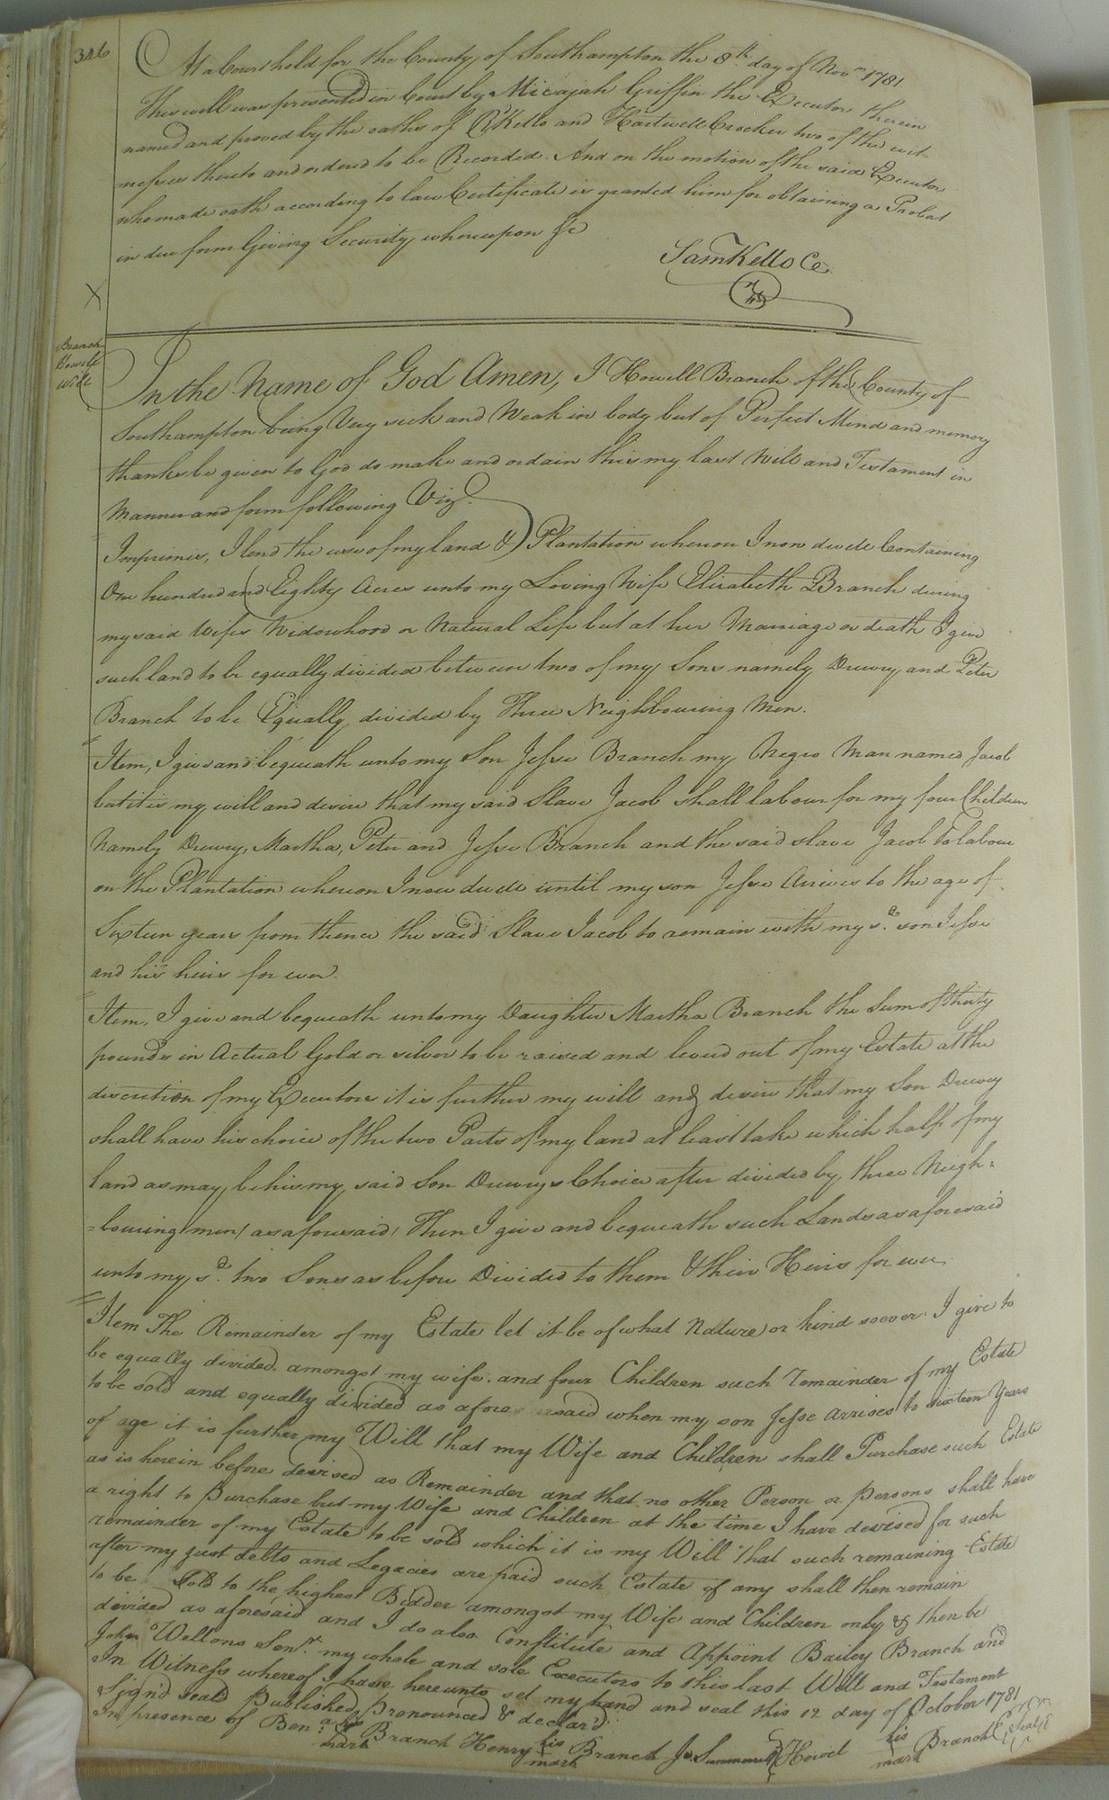 346
At a Court held for the County of Southampton the 8th day of Novr 1781
This will was presented in Court by Micajah Griffin the Executor therein
named and proved by the oaths of Kello and Hartwell Crocker two of the wit
nesses thereto and ordered to be Recorded. And on the motion of the said Executor
who made oath according to law Certificate is granted him for obtaining a Probat
in due form Giving Security whereupon &c
Sam Kello Cc
X
Branch
Howell
Will
In the Name of God Amen, I Howell Branch of the County of
Southampton being Very sick and Weak in body but of Perfect Mind and memory
thanks be given to God do make and ordain this my last Will and Testament in
Manner and form following Viz.
Imprimis, I lend the use of my land & Plantation whereon I now dwele Containing
One hundred and Eighty Acres unto my Loving Wife Elizabeth Branch during
my said Wifes Widowhood or Natural Life but at her Marriage or death I give
such land to be equally divided between two of my Sons namely Drewry and Peter
Branch to be Equally divided by Three Neighbouring Men.
Item, I give and bequeath unto my Son Jesse Branch my Negro Man named Jacob
but it is my will and desire that my said Slave Jacob shall labour for my four Children
Namely Drewry, Martha, Peter and Jesse Branch and the said slave Jacob to labour
on the Plantation whereon I now dwele until my son Jesse Arives to the age of
Sixteen years from thence the said Slave Jacob to remain with my sd. son Jesse
and his heirs for ever.
Item, I give and bequeath unto my Daughter Martha Branch the Sum of thirty
pounds in Actual Gold or silver to be raised and levied out of my Estate at the
discretion of my Executors it is further my will and desire that my Son Drewry
shall have his choice of the two Parts of my land at least take which half of my
land as may be his my said Son Drewrys Choice after divided by three Neigh=
=bouring men as aforesaid Then I give and bequeath such Lands as aforesaid
unto my sd. two Sons as before Divided to them & their Heirs for ever.
Item The Remainder of my Estate let it be of what Nature or kind soever I give to
be equally divided amongst my wife and four Children such remainder of my Estate
to be sold and equally divided as afore said when my son Jesse arrises to sixteen Years
of age it is further my Will that my Wife and Children shall Purchase such Estate
as is herein before devised as Remainder and that no other Person or Persons shall have
a right to Purchase but my Wife and Children at the time I have devised for such
remainder of my Estate to be sold which it is my Will that such remaining Estate
after my just debts and Legacies are paid such Estate if any shall then remain
to be Sold to the highest Bidder amongst my Wife and Children only & then be
divided as aforesaid and I do also Constitute and Appoint Bailey Branch and
John Wellons Senr. my whole and sole Executors to this last Will and Testament
In Witness whereof I have hereunto set my hand and seal this 12 day of October 1781
Sign'd seal'd Published Pronounced & declar'd
In presence of Benja. Branch Henry his Branch Howel his Branch Seal
mark mark mark